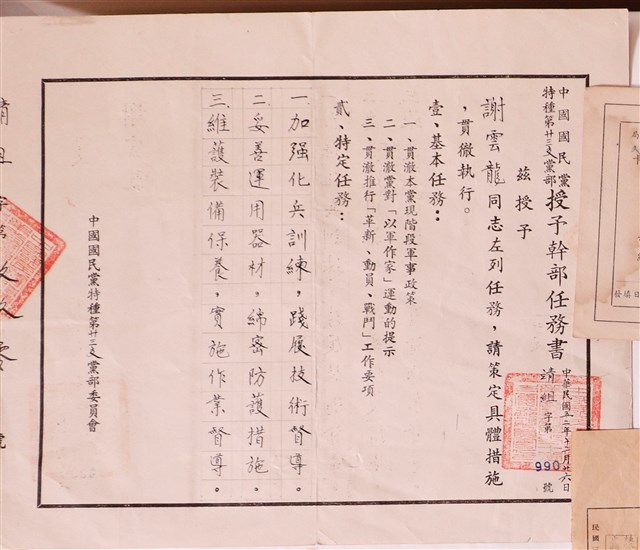 中國國民黨
特種第廿三支黨部
授予幹部任務書
中華民國五二年十二月廿六日
靖組字第990號
茲授予
謝雲龍同志左列任務,請策定具體措施
,貫徹執行。
壹、基本任務:
一、貫澈本黨現階段軍事政策
二、貫澈黨對「以軍作家」運動的提示
三、貫澈推行「革新、動員、戰鬥」工作要項
貳、特定任務:
一加强化兵訓練,踐履技術督導。
二妥善運用器材,綿密防護措施。
三維護裝備保養,實施作業督導。
中國國民黨特種第廿三支黨部委員會
號
民國三